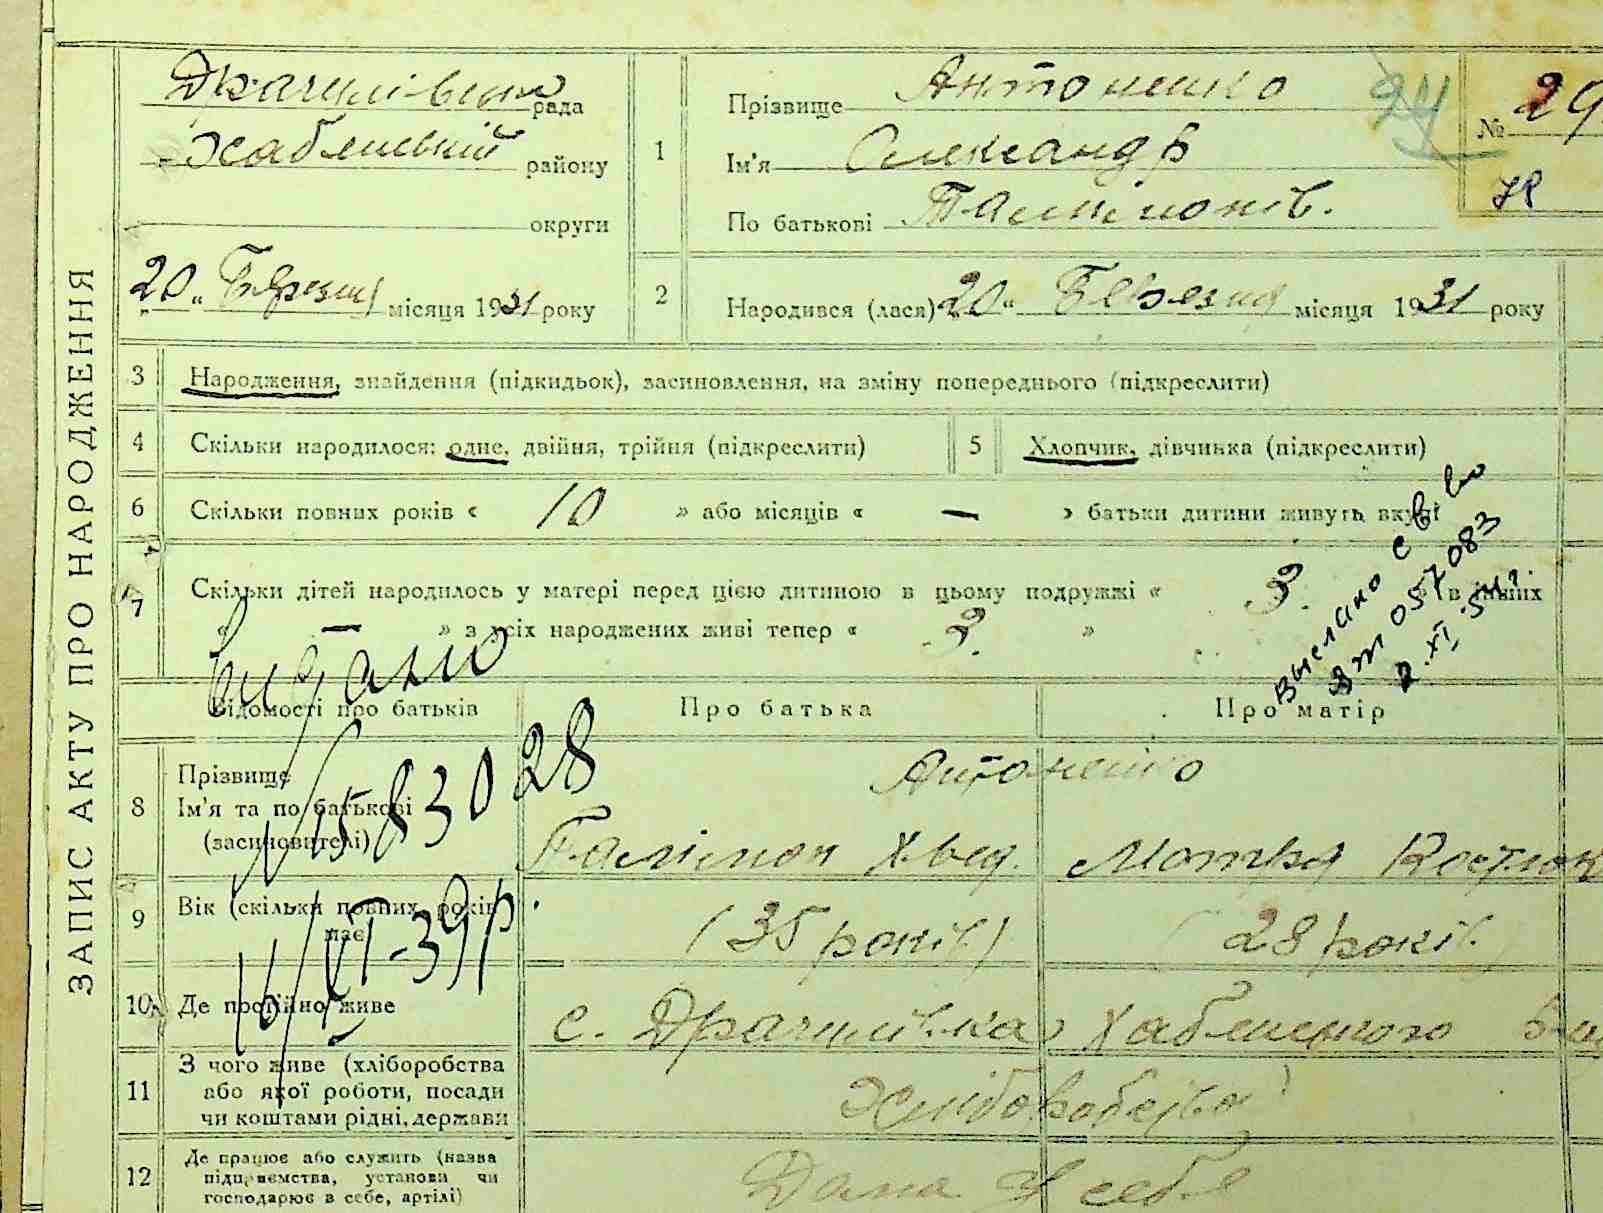 ЗАПИС АКТУ ПРО НАРОДЖЕННЯ
рада
Хабенський району
округи
20 " Березня місяця 1931 року
1
Прізвище Антоненко
Ім'я Олександр
По батькові Палімонів.
24
№ 29
2
Народився (лася) „20" Березня місяця 1931 року
3 Народження, знайдення (підкидьок), засиновлення, на зміну попереднього (підкреслити)
4 Скільки народилося: одне, двійня, трійня (підкреслити)
5 Хлопчик, дівчинка (підкреслити)
6 Скільки повних років « 10 » або місяців « — » батьки дитини живуть вкупі
7 Скільки дітей народилось у матері перед цією дитиною в цьому подружжі « 3. » в інших
« — » з усіх народжених живі тепер « 3. »
Выслано с в во
057083
2.XI.54 г.
видано
83028
16/VI-39 р.
Відомості про батьків
Про батька
Про матір
8 Прізвище
Ім'я та по батькові
(засиновителі)
Антоненко
Палімон Хвед.
Мотря Костюк
9 Вік (скільки повних років
має)
(35 років)
(28 років)
10 Де постійно живе
с. Драчилівка Хабенського
11 З чого живе (хліборобства
або якої роботи, посади
чи коштами рідні, держави
Хліборобство
12 Де працює або служить (назва
підприємства, установи чи
господарює в себе, артілі)
Дома у себе